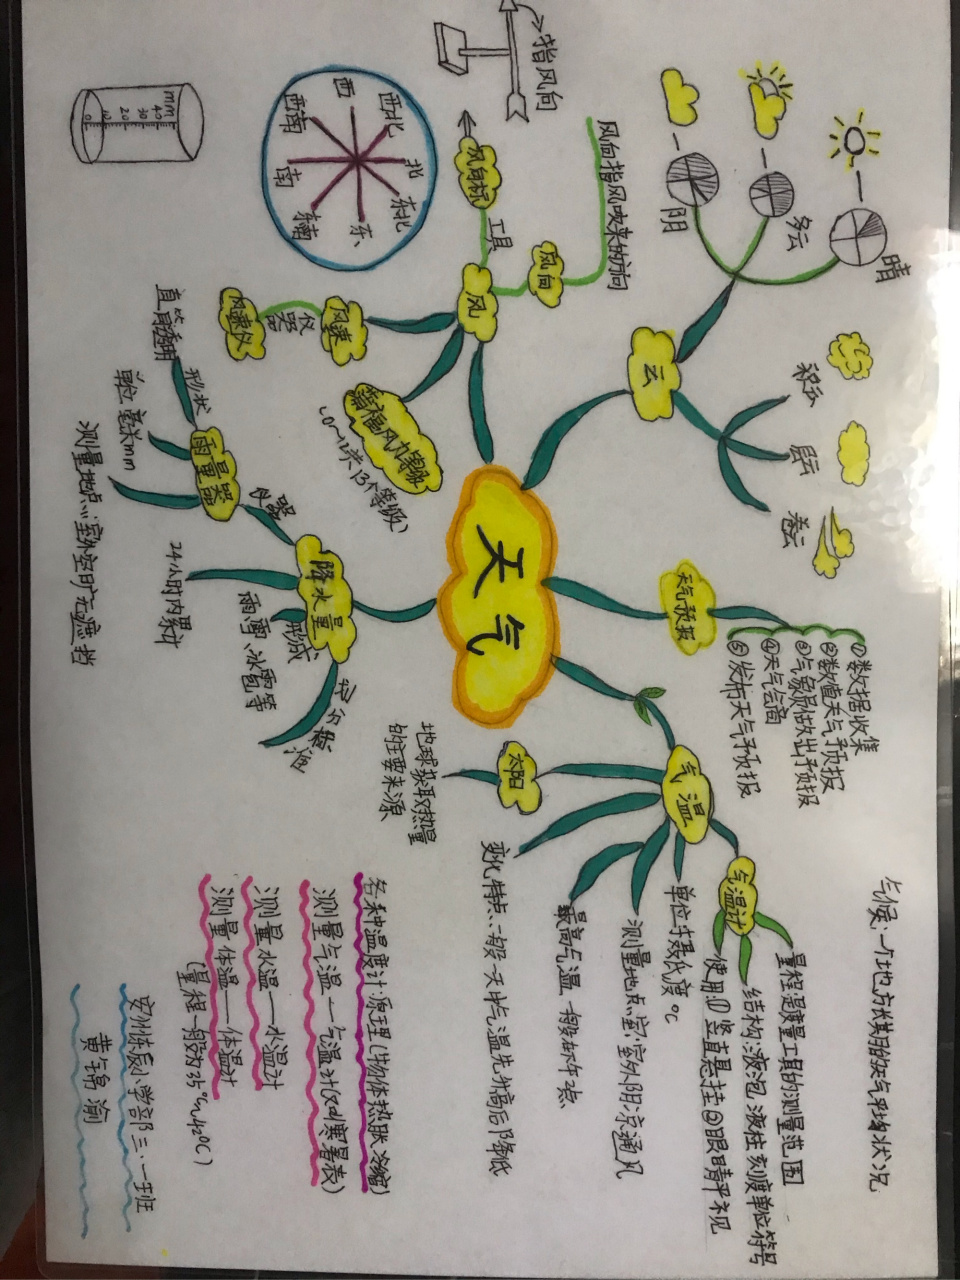 天气
云
晴
多云
阴
积云
层云
卷云
天气预报
①数据收集
②数值天气预报
③气象员做出预报
④天气会商
⑤发布天气预报
气候：一个地方长期的天气平均状况
气温
气温计
量程是度量工具的测量范围
结构：液泡 液柱 刻度 单位符号
使用：①竖直悬挂②眼睛平视
单位：摄氏度℃
测量地点：室外阴凉通风
最高气温 一般在午后
变化特点：一般一天中气温先升高后降低
太阳
地球获取热量
的主要来源
各种温度计：原理（物体热胀冷缩）
测量气温——气温计（又叫寒暑表）
测量水温——水温计
测量体温——体温计
（量程一般为35℃~42℃）
三·一班
风
风向
风向指风吹来的方向
工具
风向标
指风向
北
东北
东
东南
南
西南
西
西北
风速
仪器
风速仪
蒲福风力等级
（0~12共13个等级）
降水量
仪器
雨量器
形状
直筒透明
单位 毫米mm
测量地点：室外空旷无遮挡
24小时内累计
形成
雨雪、冰雹等
mm
40
30
20
10
0